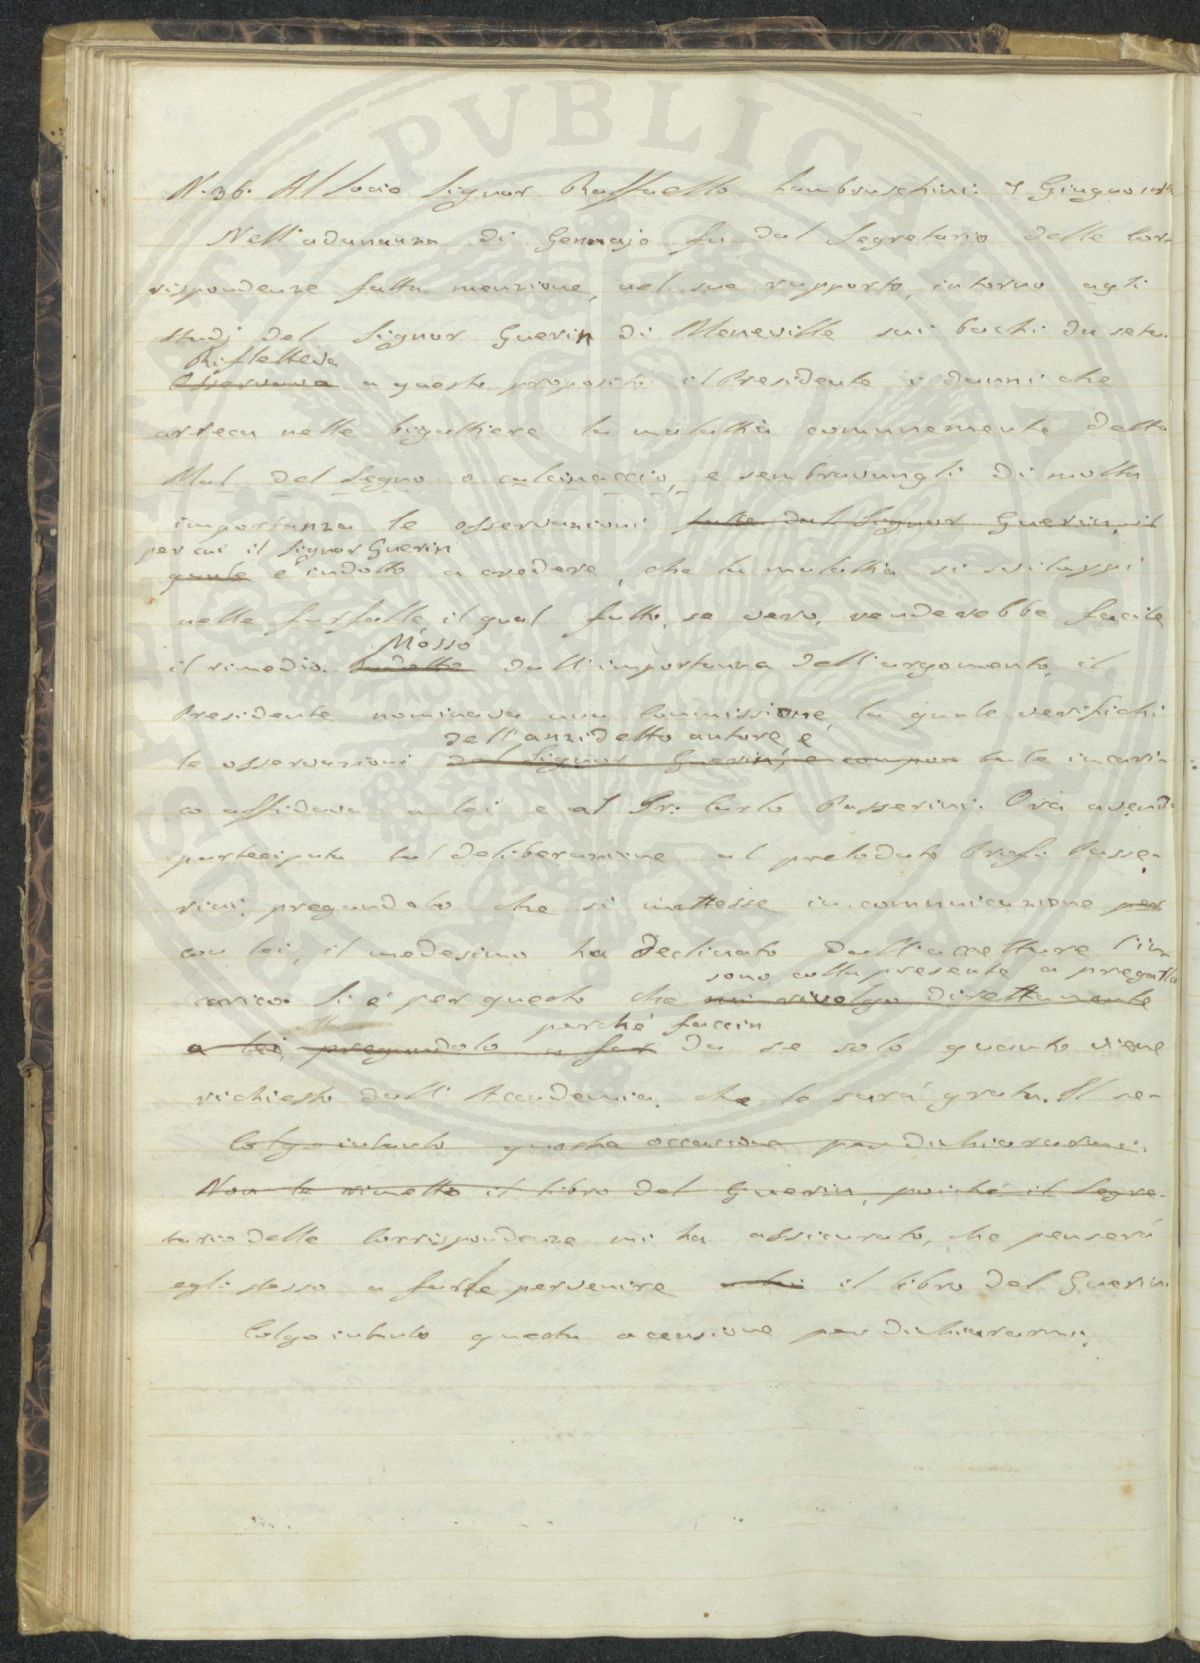 N. 36. Al Socio Signor Raffaello Lambruschini: 7 Giugno
Nell'adunanza di Gennajo fu dal Segretario delle Cor-
rispondenze fatta menzione, nel suo rapporto, intorno agli
studj del Signor Guerin di Meneville sui bachi da seta.
Rifletteva
Osservava a questo proposito il Presidente i danni che
arreca nelle bigattiere la malattia comunemente detta
Mal del Segno o calcinaccio, e sembravangli di molta
importanza le osservazioni fatte dal Signor Guerin, il
per cui il Signor Guerin
quale è indotto a credere, che la malattia si sviluppi
nelle farfalle, il qual fatto, se vero, renderebbe facile
Mosso
il rimedio. Indotto dall'importanza dell'argomento, il
Presidente nominava una Commissione, la quale verifichi
dell'anzidetto autore, e
le osservazioni del Signor Guerin, e compon tale incari-
co affidava a lei e al Pr: Carlo Passerini. Ora avendo
partecipata tal deliberazione al prelodato Prof. Passe-
rini, pregandolo che si mettesse in comunicazione per
con lei, il medesimo ha declinato dall'accettare l'in
sono colla presente a pregarla
carico. Si è per questo che mi rivolgo direttamente
perché faccia
a lei, pregandola a far da se solo quanto viene
richiesto dall'Accademia, che le sarà grata. Il se-
Colgo intanto questa occasione per dichiararmi.
Non le rimetto il libro del Guerin, poiché il Segre-
tario delle Corrispondenze mi ha assicurato, che penserà
egli stesso a farle pervenire a lei il libro del Guerin.
Colgo intanto questa occasione per dichiararmi.
PVBLICAE